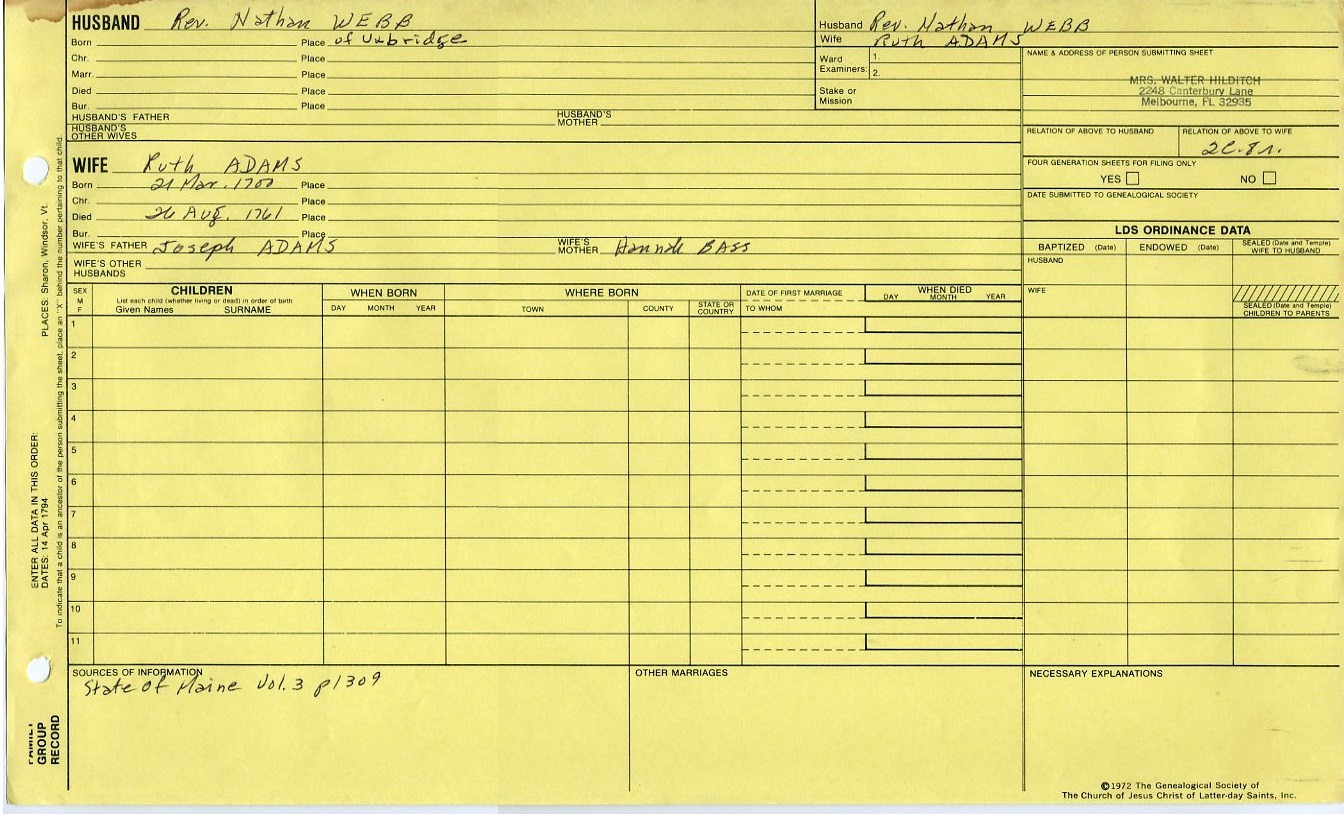 HUSBAND Rev. Nathan WEBB
Born Place of Uxbridge
Chr. Place
Marr. Place
Died Place
Bur. Place
HUSBAND'S FATHER HUSBAND'S MOTHER
HUSBAND'S OTHER WIVES
Husband Rev. Nathan WEBB
Wife Ruth ADAMS
Ward Examiners: 1.
2.
Stake or Mission
NAME & ADDRESS OF PERSON SUBMITTING SHEET
MRS. WALTER HILDITCH
2248 Canterbury Lane
Melbourne, FL 32935
RELATION OF ABOVE TO HUSBAND RELATION OF ABOVE TO WIFE
2C.8r.
FOUR GENERATION SHEETS FOR FILING ONLY
YES NO
DATE SUBMITTED TO GENEALOGICAL SOCIETY
WIFE Ruth ADAMS
Born 21 Mar. 1700 Place
Chr. Place
Died 26 Aug. 1761 Place
Bur. Place
WIFE'S FATHER Joseph ADAMS WIFE'S MOTHER Hannah BASS
WIFE'S OTHER HUSBANDS
LDS ORDINANCE DATA
BAPTIZED (Date) ENDOWED (Date) SEALED (Date and Temple) WIFE TO HUSBAND
HUSBAND
WIFE
SEALED (Date and Temple) CHILDREN TO PARENTS
SEX M F
CHILDREN
List each child (whether living or dead) in order of birth
Given Names SURNAME
WHEN BORN
DAY MONTH YEAR
WHERE BORN
TOWN COUNTY STATE OR COUNTRY
DATE OF FIRST MARRIAGE
TO WHOM
WHEN DIED
DAY MONTH YEAR
1
2
3
4
5
6
7
8
9
10
11
SOURCES OF INFORMATION
State of Maine Vol.3 p1309
OTHER MARRIAGES
NECESSARY EXPLANATIONS
©1972 The Genealogical Society of
The Church of Jesus Christ of Latter-day Saints, Inc.
ENTER ALL DATA IN THIS ORDER:
DATES: 14 Apr 1794
PLACES: Sharon, Windsor, Vt.
To indicate that a child is an ancestor of the person submitting the sheet, place an "X" behind the number pertaining to that child.
FAMILY
GROUP
RECORD